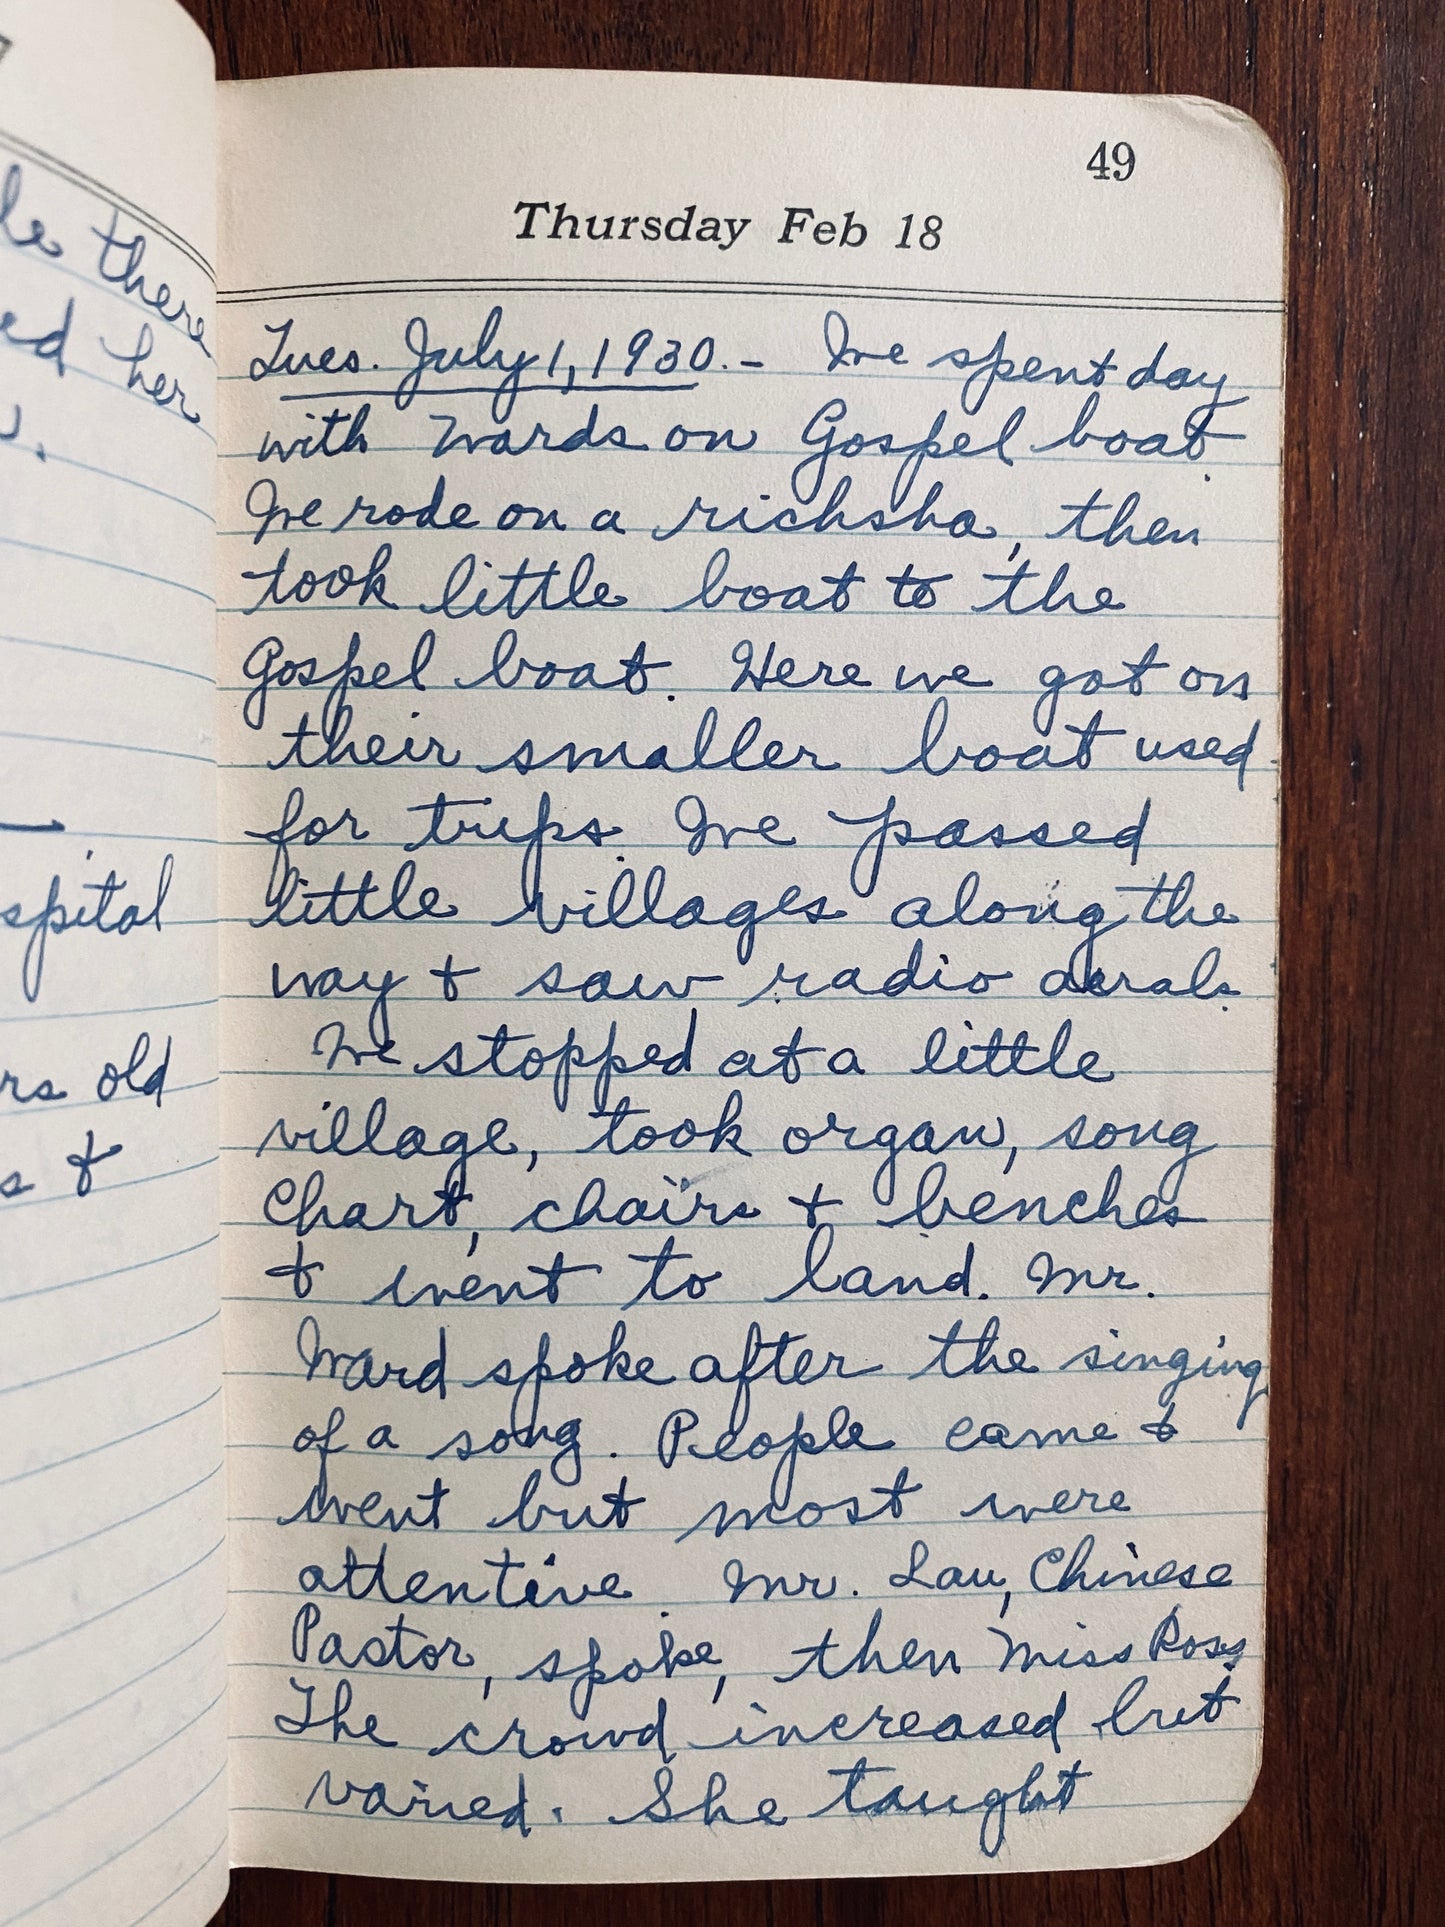 there
ed her
spital
rs old
s +
49
Thursday Feb 18
Tues. July 1, 1930.- We spent day
with Wards on Gospel boat.
We rode on a richsha, then
took little boat to the
Gospel boat. Here we got on
their smaller boat used
for trips. We passed
little villages along the
way + saw radio aerals.
We stopped at a little
village, took organ, song
Chart, chairs + benches
+ went to land. Mr.
Ward spoke after the singing
of a song. People came +
went but most were
attentive. Mr. Lau, Chinese
Pastor, spoke, then Miss Ross.
The crowd increased but
varied. She taught